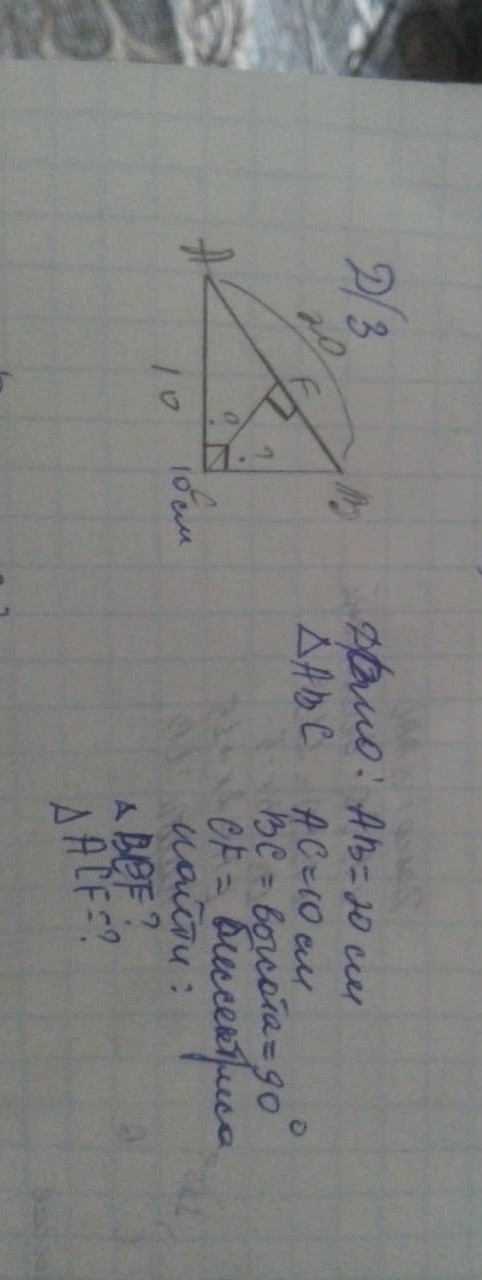 Д/З
A
20
F
B
?
?
10
C
10 см
Дано: AB = 20 см
Δ ABC AC = 10 см
BC = высота = 90°
CF = биссектриса
Найти:
Δ BCF?
Δ ACF = ?